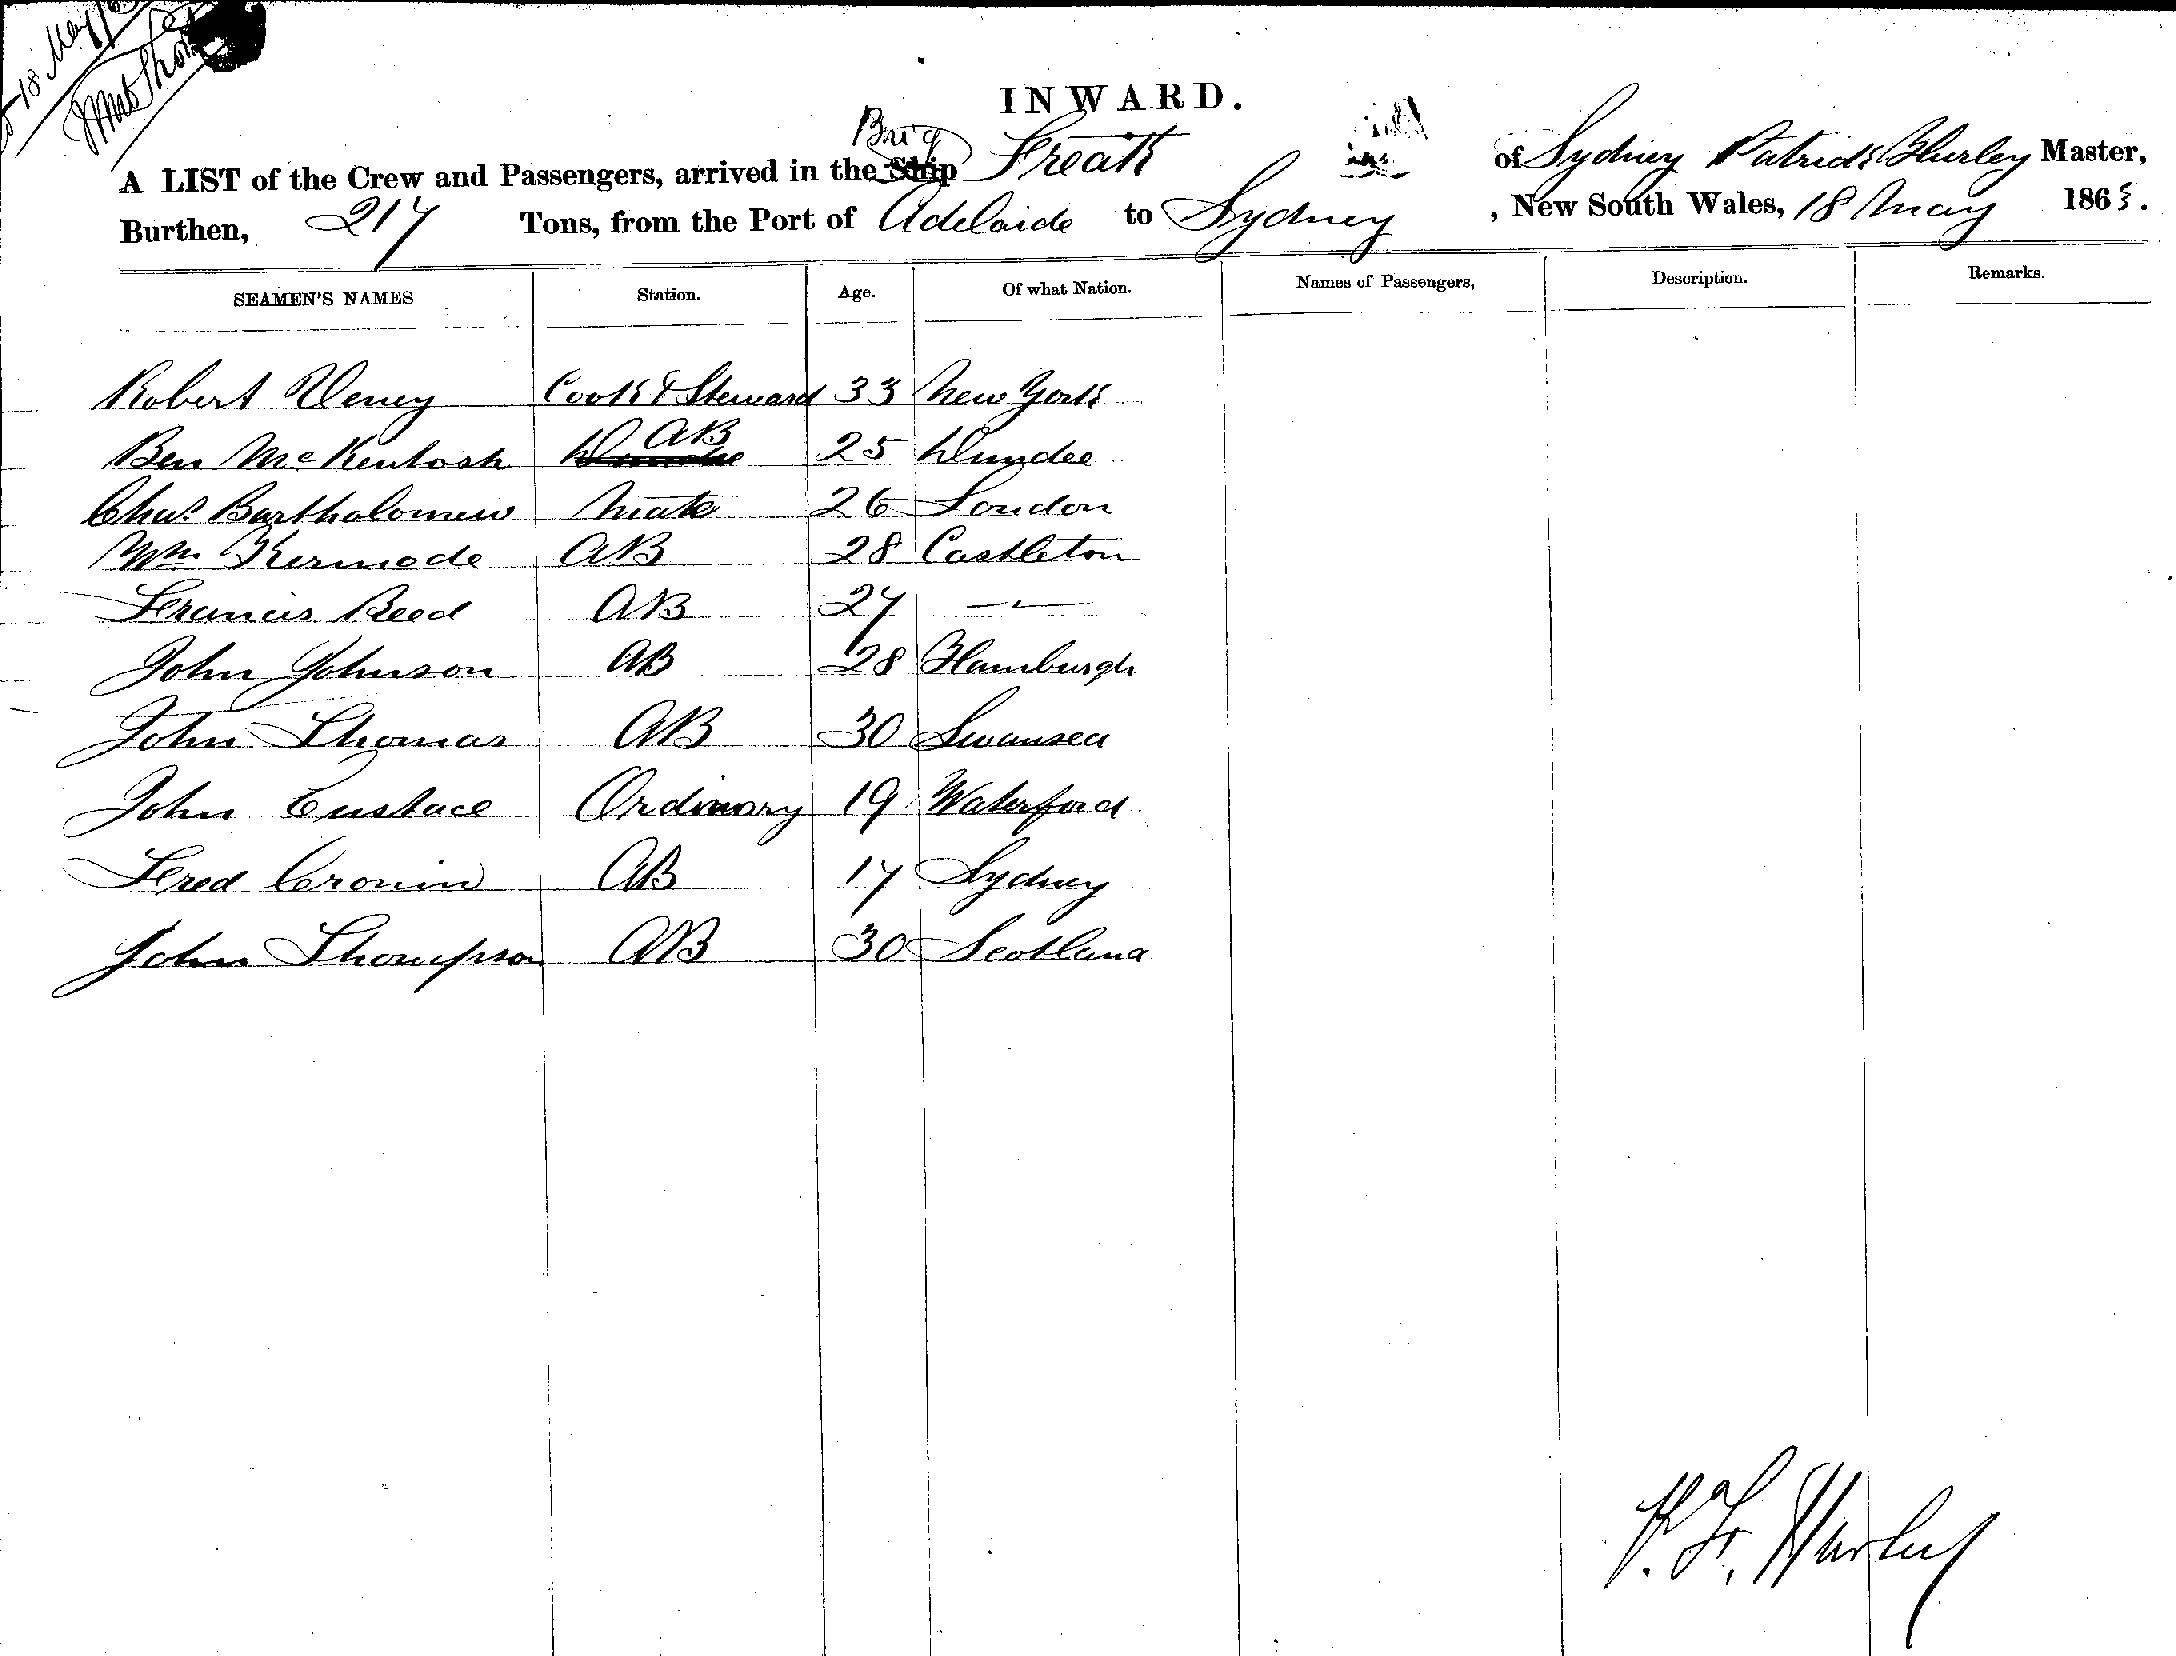 18 May
INWARD.
Brig
A LIST of the Crew and Passengers, arrived in the Ship Freak of Sydney Patrick Hurley Master,
Burthen, 217 Tons, from the Port of Adelaide to Sydney , New South Wales, 18 May 1863.
SEAMEN'S NAMES Station. Age. Of what Nation. Names of Passengers, Description. Remarks.
Robert Cook & Steward 33 New York
Ben McKentosh AB 25 Dundee
Chas. Bartholomew Mate 26 London
Wm Kermode AB 28 Castleton
Francis Reed AB 27 —"—
John Johnson AB 28 Hamburgh
John Thomas AB 30 Swansea
John Eustace Ordinary 19 Waterford
Fred Cronin AB 17 Sydney
John Thompson AB 30 Scotland
P. F. Hurley